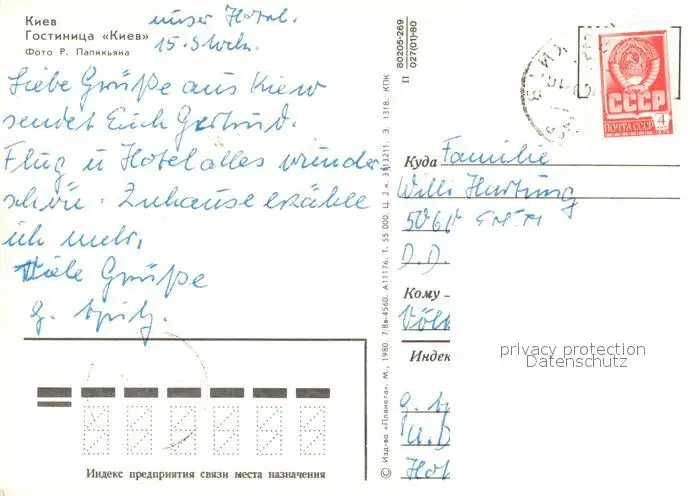 Киев
Гостиница «Киев»
Фото Р. Папикьяна
unser Hotel.
15. Stock.
Liebe Grüße aus Kiew
sendet Euch Gertrud.
Flug u Hotel alles wunder
schön. Zuhause erzähle
ich mehr.
Viele Grüße
G.
80205-269
027(01)-80
П
СССР
ПОЧТА СССР
4
Куда Familie
Willi Hartung
D.D.
Кому
Индек
© Изд-во «Планета». М., 1980. 7/8в-4560. А11176. Т. 55 000. Ц. 2 к. 3. 1318. КПК
privacy protection
Datenschutz
Индекс предприятия связи места назначения